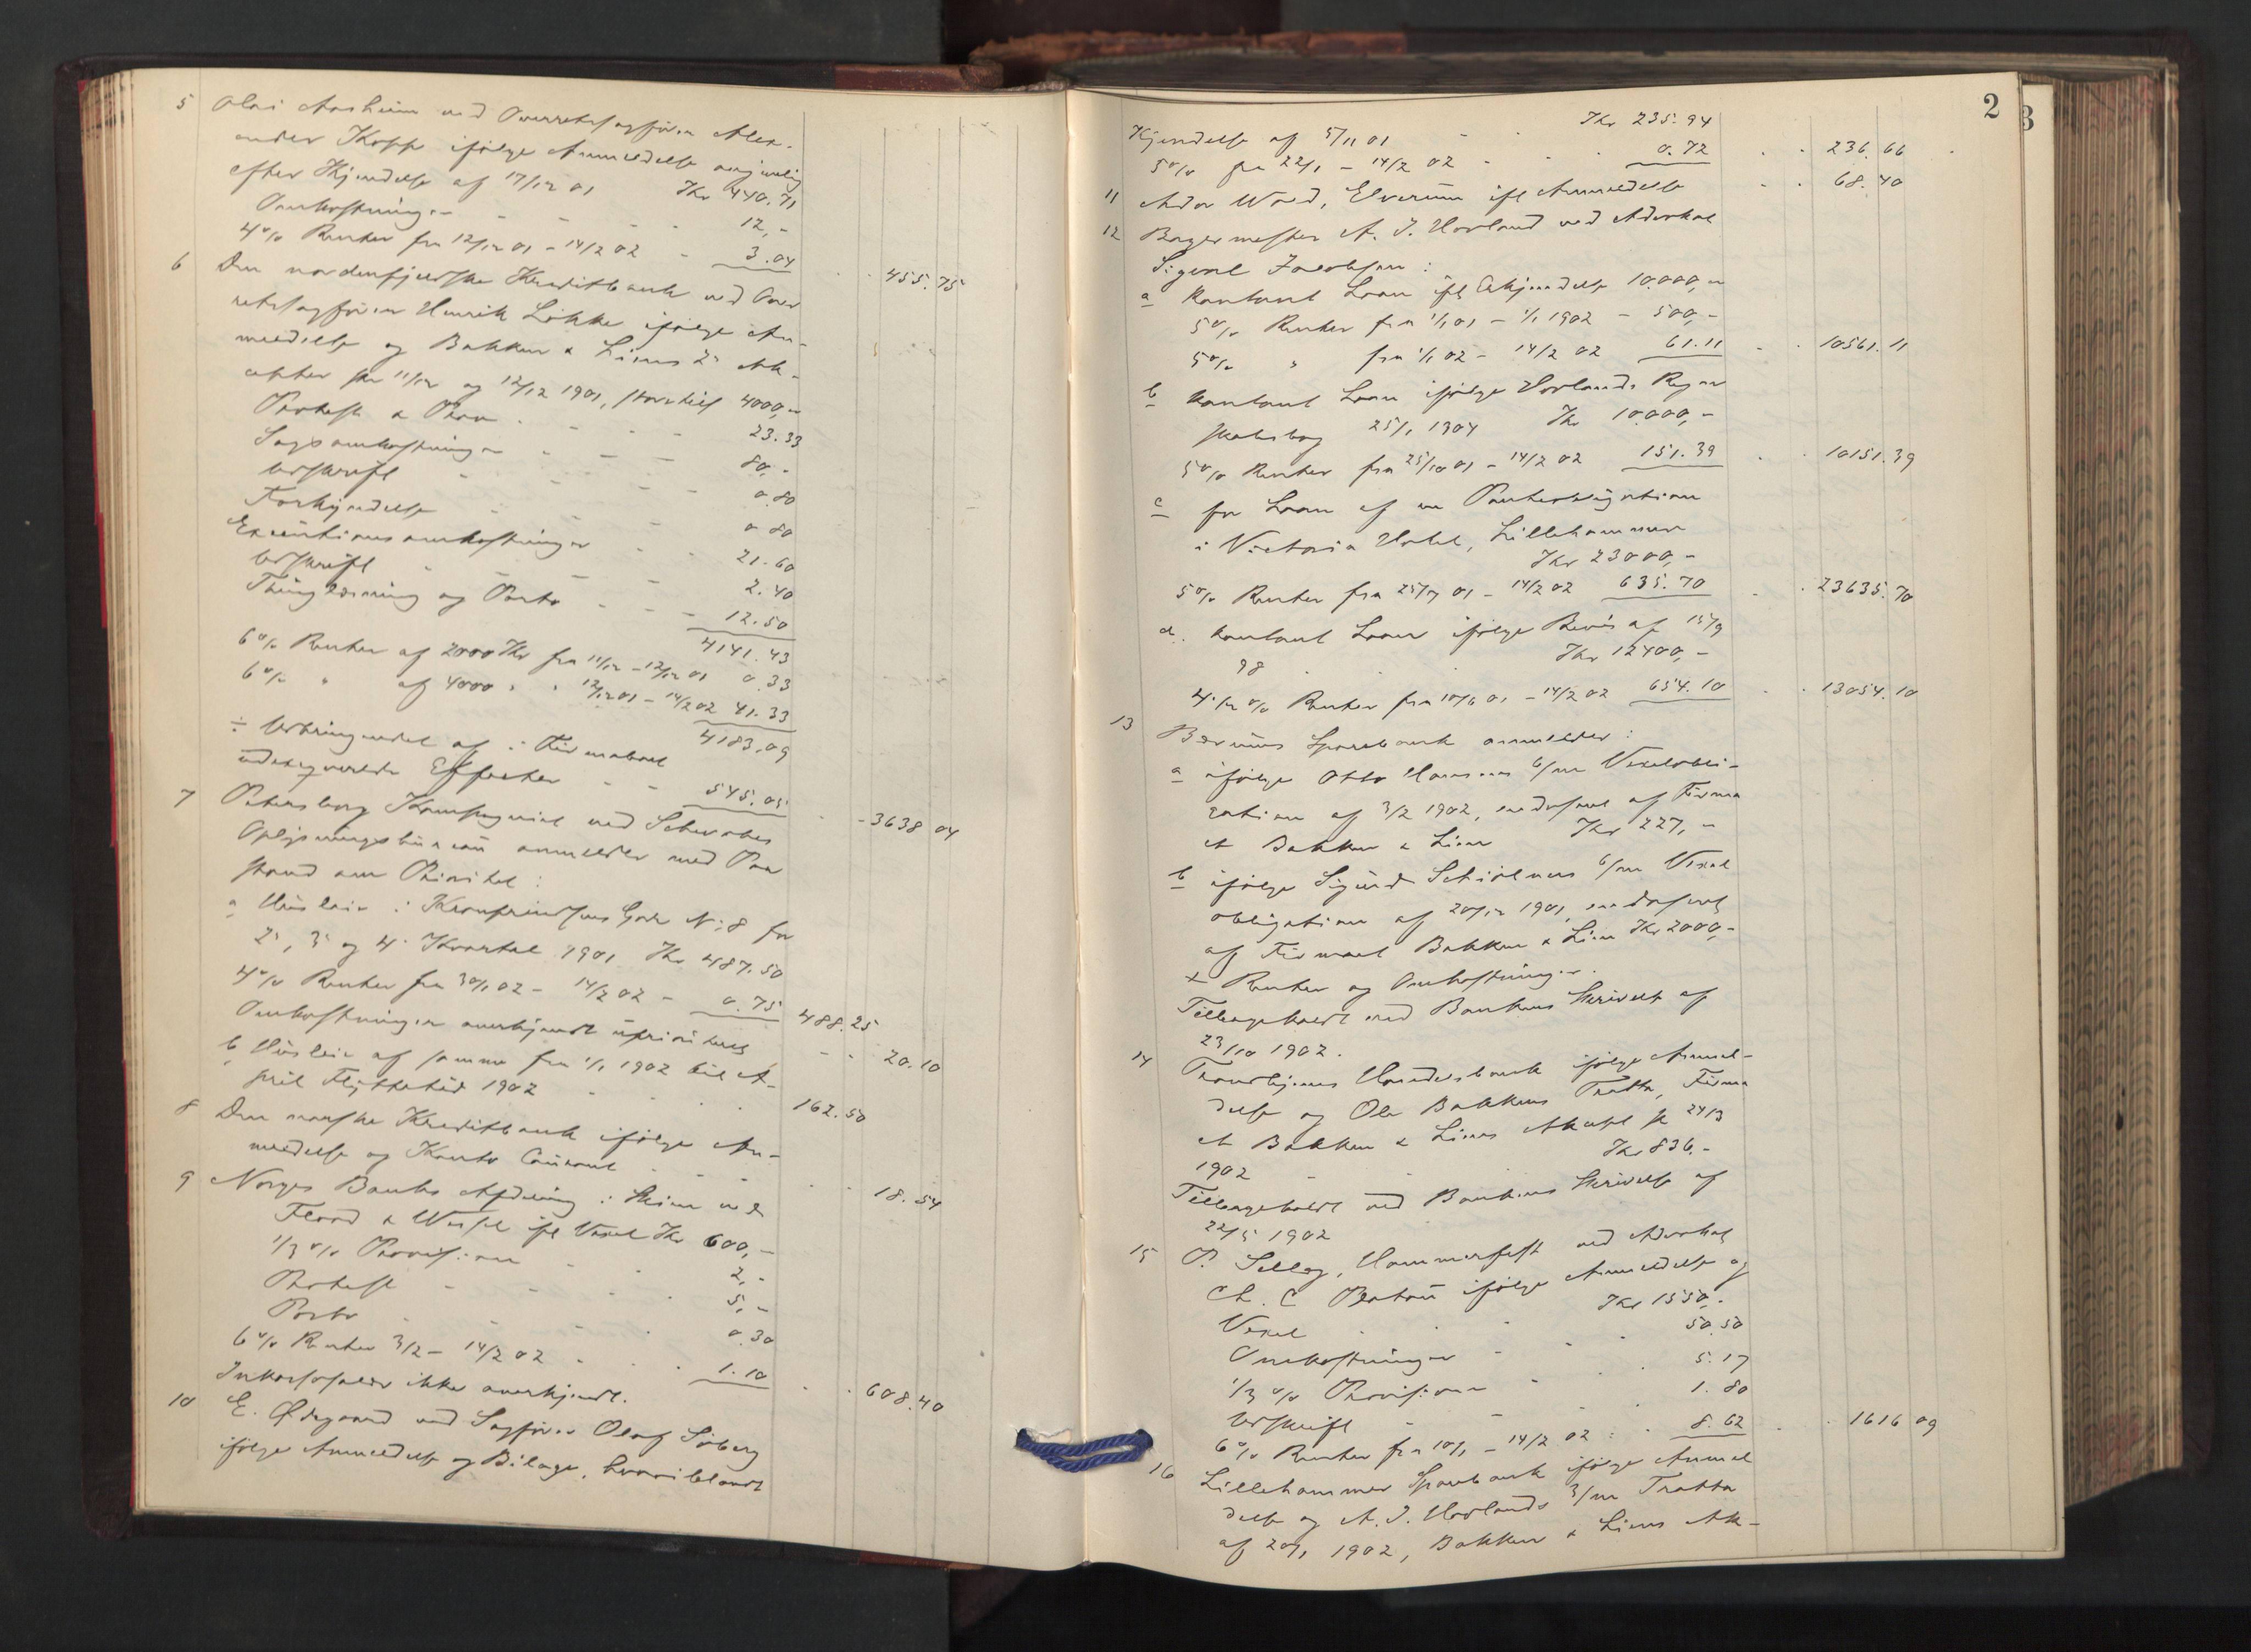 5 Olai Aasheim ved Overretssagfører Alex-
ander Kopp ifølge Anmeldelse
efter Kjendelse af 17/12 01 Kr 440.71
Omkostninger - - - - 12,-
4 % Renter fra 12/12 01 - 14/2 02 - 3.04 455.75
6 Den nordenfjeldske Kreditbank ved Over
retssagfører Henrik Løkke ifølge An-
meldelse og Bakken & Liens 2 Ak-
cepter pr 11/12 og 12/12 1901, stor tils 4000,-
Protest & Prov. - - - 23.33
Sagsomkostninger - - - 80,-
Udskrift - - - 0.80
Forkyndelse - - 0 80
Executionsomkostninger - - 21.60
Udskrift - - - 2.40
Thinglæsning og Porto - - - 12.50
4141.43
6 % Renter af 2000 Kr fra 11/12 - 12/12 01 0.33
6 % " af 4000 " " 12/12 01 - 14/2 02 41.33
4183.09
÷ Udbringendet af i Firmaboet
udexeqverede Effecter - - 545.05 - 3638 04
7 Petersborg Kompagniet ved Schwabes
Oplysningsbureau anmelder med Paa
stand om Prioritet:
a Husleie i Kronprindsens Gade N: 8 for
2, 3 og 4. Kvartal 1901 Kr 487.50
4 % Renter fra 30/1 02 - 14/2 02 - 0.75 488.25
Omkostninger anerkjendt uprioritert - - 20.10
b Husleie af samme fra 1/1 1902 til A-
pril Flyttetid 1902 - - - 162.50
8 Den norske Kreditbank ifølge An-
meldelse og Konto Courant - - - 18.54
9 Norges Banks Afdeling i Skien ved
Flood & Wessel ifl Vexel Kr 600,-
1/3 % Provision - - 2,-
Protest - - - 5,-
Porto - - - 0.30
6 % Renter 3/2 - 14/2 02 - - 1.10 608.40
Inkassosalær ikke anerkjendt.
10 E. Ødegaard ved Sagfører Olaf Søberg
ifølge Anmeldelse og Bilage, hvoriblandt
2
3
Kjendelse af 5/11 01 - - Kr 235.94
5 % fra 22/1 - 14/2 02 - - 0.72 236.66
11 Elverum ifl Anmeldelse 68.40
12 Bagermester A. J. Hovland ved Advokat
Sigurd Jacobsen:
a Kontant Laan ifl Erkjendelse 10.000,-
5 % Renter fra 1/1 01 - 1/1 1902 - 500,-
5 % " fra 1/1 02 - 14/2 02 61.11 10561.11
b Kontant Laan ifølge Hovlands Regn
skabsbog 25/1 1904 Kr 10.000,-
5 % Renter fra 25/10 01 - 14/2 02 151.39 10151.39
c for Laan af en Panteobligation
i Victoria Hotel, Lillehammer
Kr 23000,-
5 % Renter fra 25/7 01 - 14/2 02 635.70 23635.70
d. Kontant Laan ifølge Bevis af 15/9
98 Kr 12400,-
4 1/2 % Renter fra 14/2 02 654.10 13054.10
13 Bærums Sparebank anmelder:
a ifølge Otto Hansens 6/m Vexelobli-
gation af 3/2 1902, endosseret af Firma
et Bakken & Lien Kr 227,-
b ifølge Sigurd 6/m Vexel
obligation af 20/12 1901, endosseret
af Firmaet Bakken & Lien Kr 2000,-
+ Renter og Omkostninger.
Tilbagekaldt ved Bankens Skrivelse af
23/10 1902.
14 Trondhjems Handelsbank ifølge Anmel-
delse og Ole Bakkens Tratta, Firma
et Bakken & Liens Akcept pr 24/3
1902 - - Kr 836,-
Tilbagekaldt ved Bankens Skrivelse af
22/5 1902
15 P. Hammerfest ved Advokat
Ch. C Platou ifølge Anmeldelse og
Vexel - - - Kr 1550,-
Omkostninger - - 50.50
1/3 % Provision - - 5.17
Udskrift - - 1.80
6 % Renter fra 10/1 - 14/2 02 - - 8.62 1616 09
16 Lillehammer Sparebank ifølge Anmel
delse og A. J. Hovlands 3/m Tratta
af 20/1 1902, Bakken & Liens Ak-